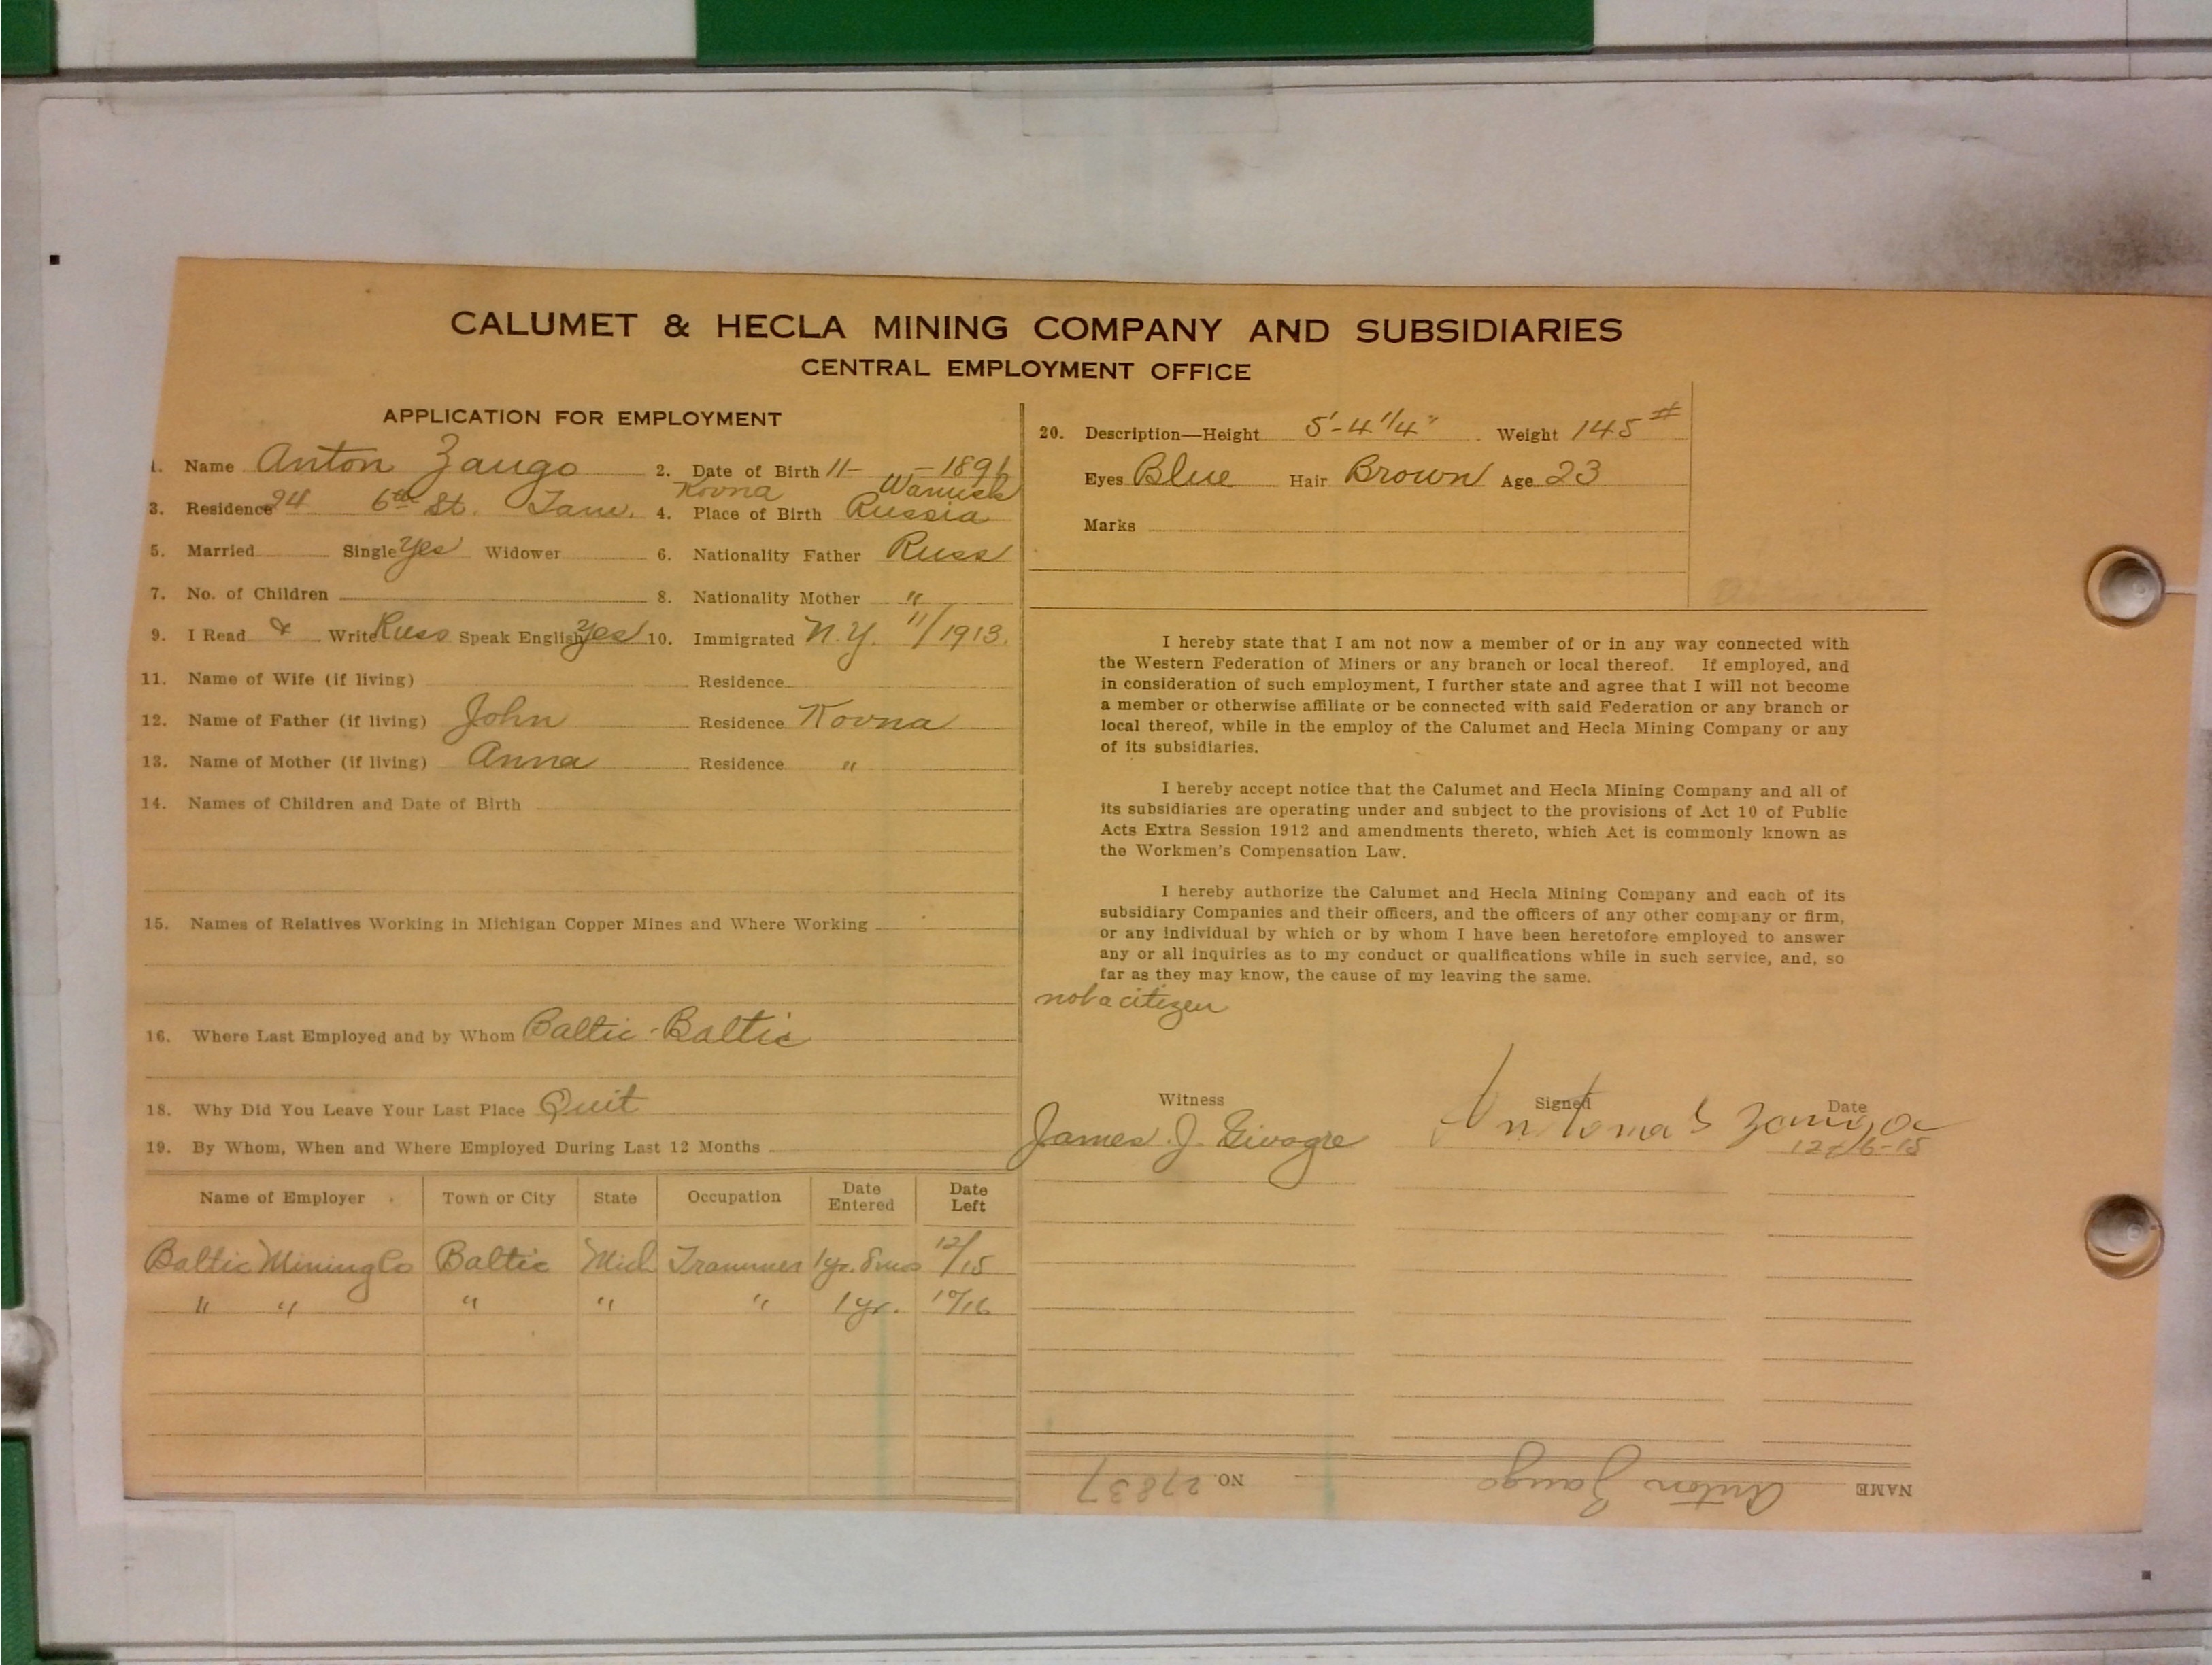 CALUMET & HECLA MINING COMPANY AND SUBSIDIARIES
CENTRAL EMPLOYMENT OFFICE
APPLICATION FOR EMPLOYMENT
1. Name Anton Zaugo 2. Date of Birth 11- -1891
Kovna
3. Residence 24 6th St. 4. Place of Birth Russia
5. Married Single Yes Widower 6. Nationality Father Russ
7. No. of Children 8. Nationality Mother "
9. I Read & Write Russ Speak English Yes 10. Immigrated N.Y. 11/1913.
11. Name of Wife (if living) Residence
12. Name of Father (if living) John Residence Kovna
13. Name of Mother (if living) Anna Residence "
14. Names of Children and Date of Birth
15. Names of Relatives Working in Michigan Copper Mines and Where Working
16. Where Last Employed and by Whom Baltic - Baltic
18. Why Did You Leave Your Last Place Quit
19. By Whom, When and Where Employed During Last 12 Months
Name of Employer Town or City State Occupation Date Entered Date Left
Baltic Mining Co Baltic Mich Trammer 1yr. 8mos 12/15
" " " " " 1 yr. 10/16
20. Description—Height 5'-4 1/4" Weight 145#
Eyes Blue Hair Brown Age 23
Marks
I hereby state that I am not now a member of or in any way connected with
the Western Federation of Miners or any branch or local thereof. If employed, and
in consideration of such employment, I further state and agree that I will not become
a member or otherwise affiliate or be connected with said Federation or any branch or
local thereof, while in the employ of the Calumet and Hecla Mining Company or any
of its subsidiaries.
I hereby accept notice that the Calumet and Hecla Mining Company and all of
its subsidiaries are operating under and subject to the provisions of Act 10 of Public
Acts Extra Session 1912 and amendments thereto, which Act is commonly known as
the Workmen's Compensation Law.
I hereby authorize the Calumet and Hecla Mining Company and each of its
subsidiary Companies and their officers, and the officers of any other company or firm,
or any individual by which or by whom I have been heretofore employed to answer
any or all inquiries as to my conduct or qualifications while in such service, and, so
far as they may know, the cause of my leaving the same.
not a citizen
Witness Signed Date
James J. Antonas
NAME Anton Zaugo NO. 27837